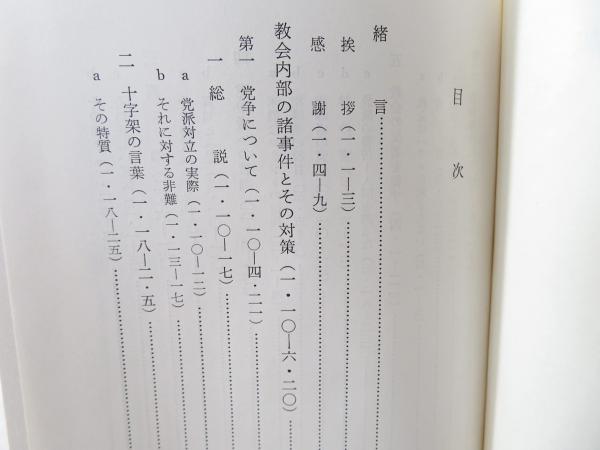 目次
緒言……………………
挨拶（一・一―三）……………
感謝（一・四―九）……………
教会内部の諸事件とその対策（一・一〇―六・二〇）……
第一 党争について（一・一〇―四・二一）…………
一 総説（一・一〇―一七）……………
a 党派対立の実際（一・一〇―一二）…………
b それに対する非難（一・一三―一七）…………
二 十字架の言葉（一・一八―二・五）…………
a その特質（一・一八―二五）……………